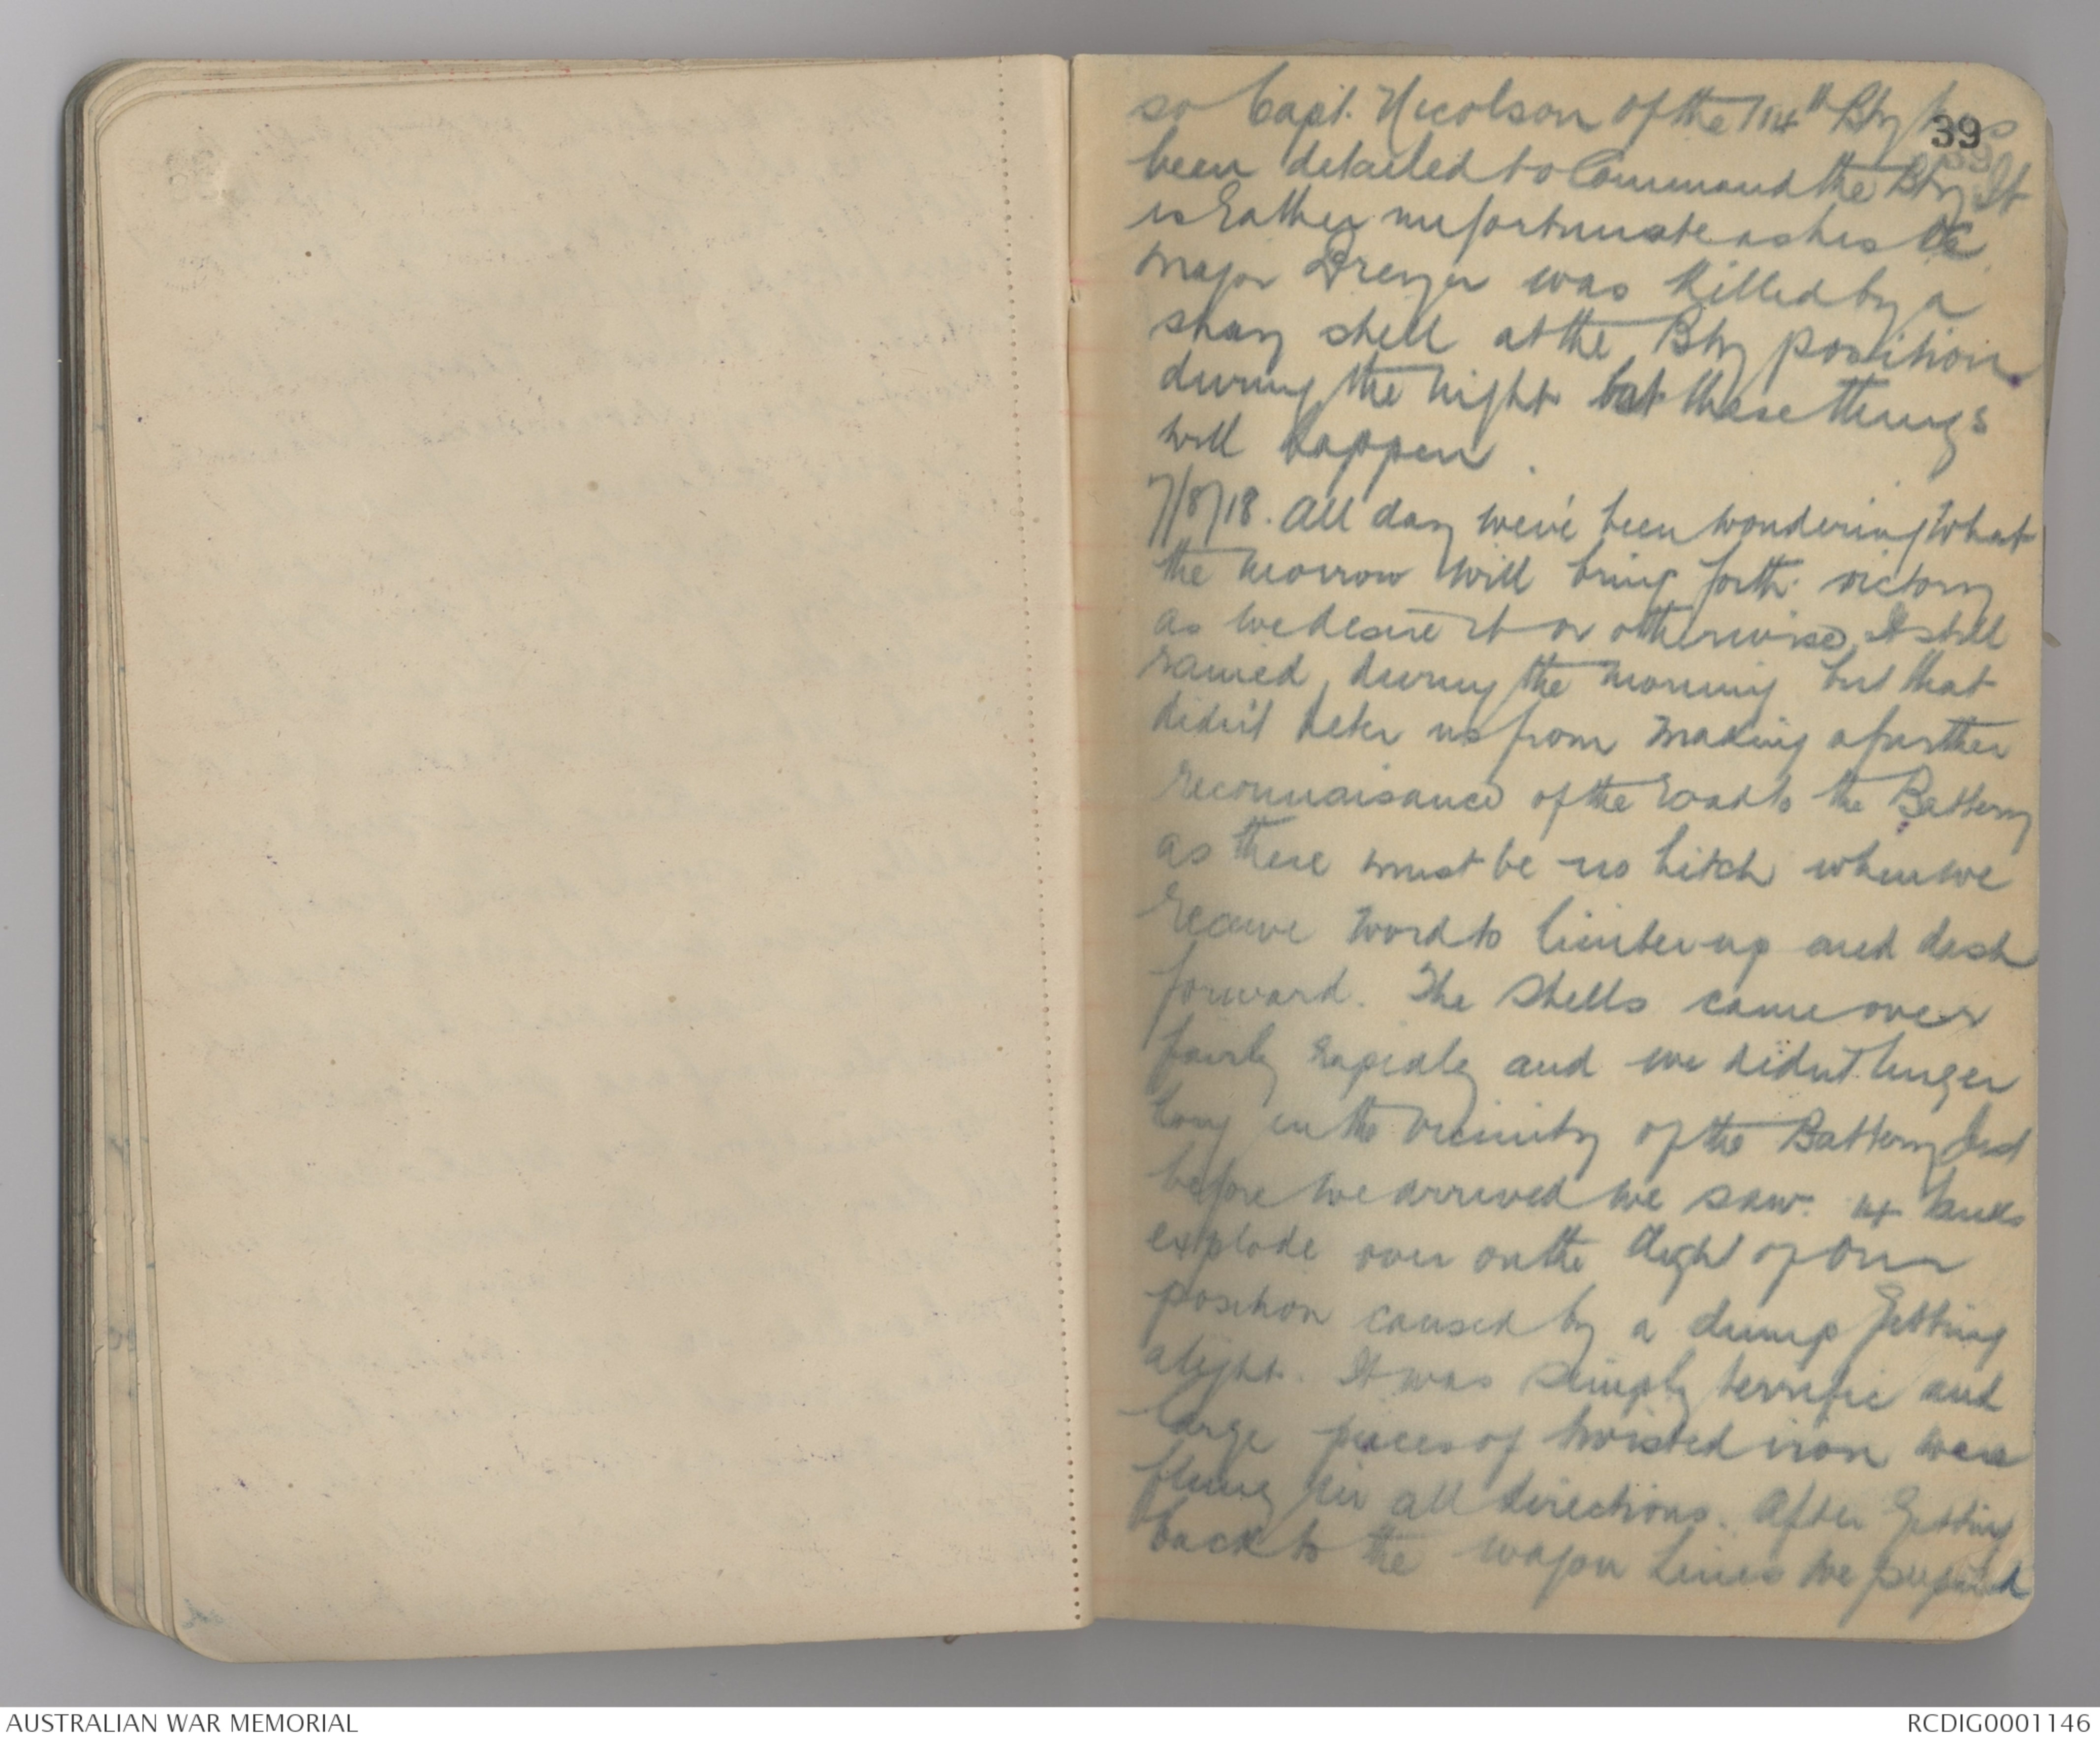 39
so Capt. Nicolson of the 114th Bty has
been detailed to Command the Bty. It
is rather unfortunate as his OC
Major Dreyer was killed by a
stray shell at the Bty position
during the night but these things
will happen.
7/8/18. All day we've been wondering what
the morrow will bring forth victory
as we desire it or otherwise. It still
rained during the morning but that
didn't deter us from making a further
reconnaisance of the road to the Battery
as there must be no hitch when we
receive word to limber up and dash
forward. The shells came over
fairly rapidly and we didn't linger
long in the vicinity of the Battery Just
before we arrived we saw
explode over on the right of our
position caused by a dump getting
alight. It was simply terrific and
large pieces of twisted iron were
flung in all directions. After getting
back to the wagon lines we prepared
AUSTRALIAN WAR MEMORIAL
RCDIG0001146